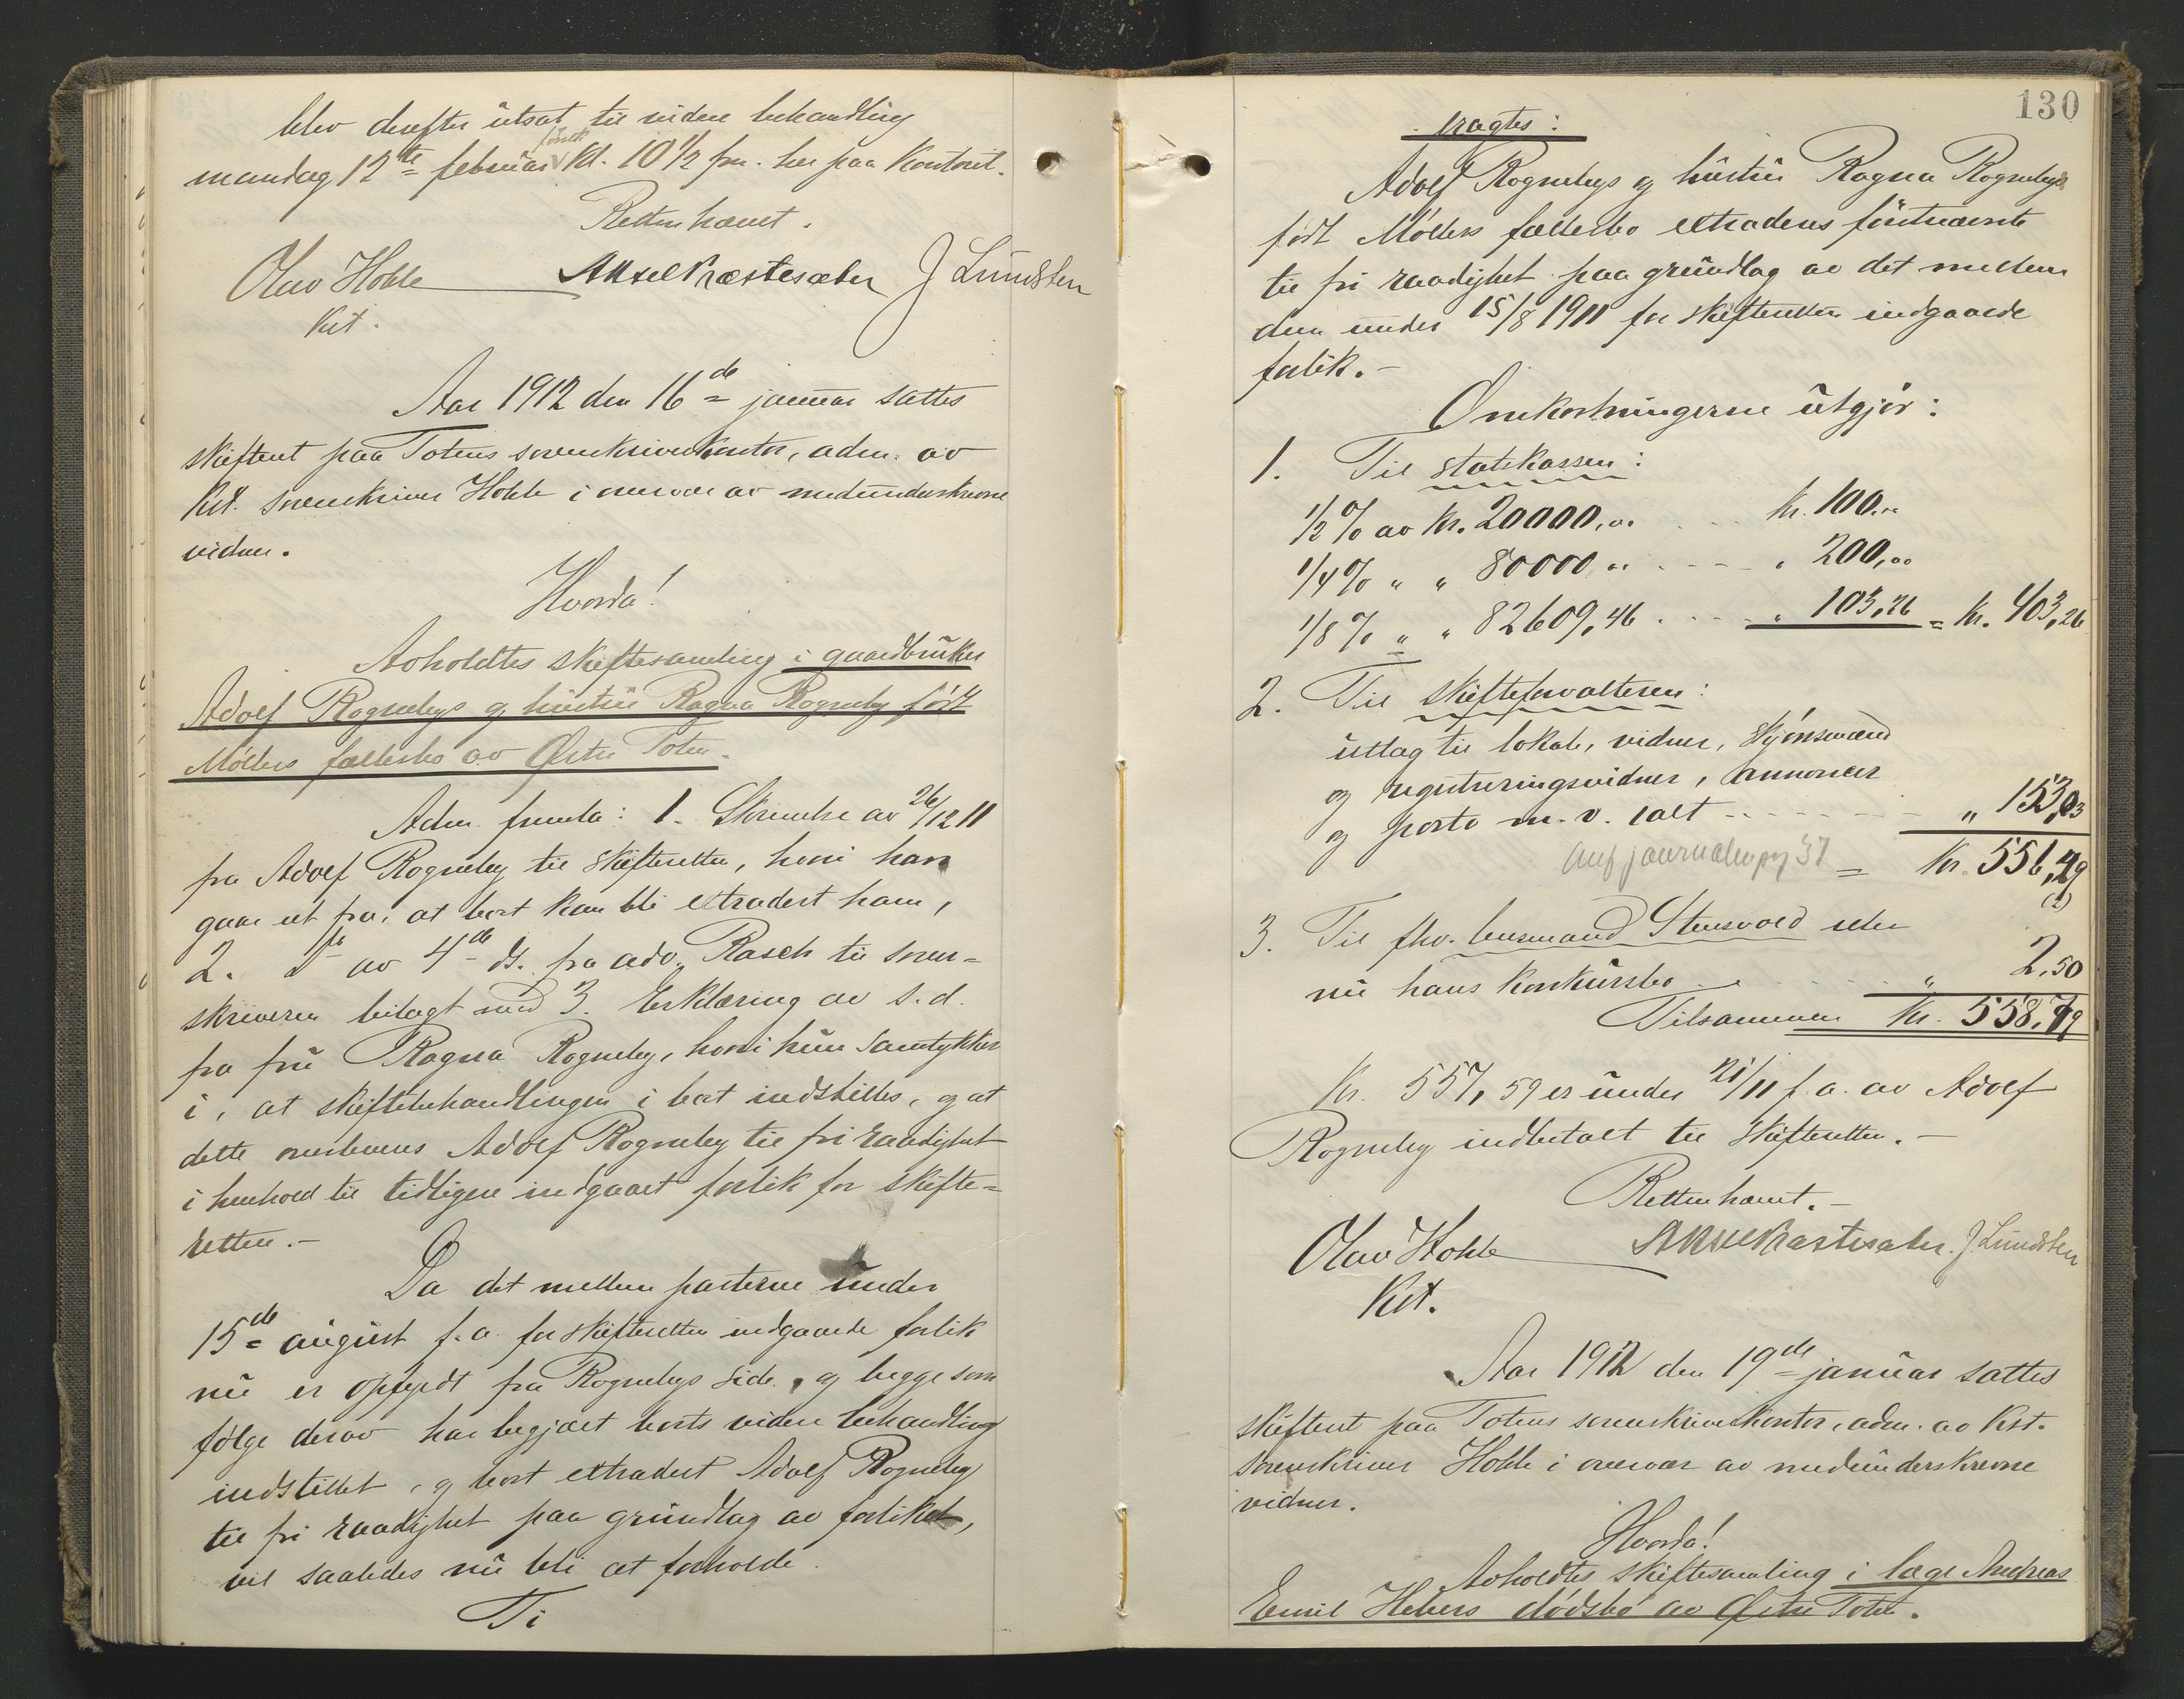 blev derefter utsat til videre behandling
mandag 12te februar kl. 10 1/2 fm. her paa Kontoret.
Retten hævet.
Olav Hohle Aksel Kræstesæter J Lundsten
Kst.
Aar 1912 den 16de januar sattes
skifteret paa Totens sorenskriverkontor, adm. av
Kst. sorenskriver Hohle i overvær av medunderskrevne
vidner.
Hvorda!
Avholdtes skiftesamling i gaardbruker
Adolf Rognebys og hustru Ragna Rogneby født
Møllers fællesbo av Østre Toten.
Adm. fremla: 1. Skrivelse av 26/12 11
fra Adolf Rogneby til skifteretten, hvori han
gaar ut fra, at boet kan bli extradert ham,
2. do av 4de ds. fra adv. Rasch til soren-
skriveren bilagt med 3. Erklæring av s.d.
fra fru Ragna Rogneby, hvori hun samtykker
i, at skiftebehandlingen i boet indstilles, og at
dette overleveres Adolf Rogneby til fri raadighet
i henhold til tidligere indgaaet forlik for skifte-
retten.-
Da det mellem parterne under
15de august f.a. for skifteretten indgaaede forlik
nu er opfyldt fra Rognebys side, og begge som
følge derav har begjært boets videre behandling
indstillet, og boet extradert Adolf Rogneby
til fri raadighet paa grundlag av forliket,
vil saaledes nu bli at forholde.
Ti
130
tragtes:
Adolf Rognebys og hustru Ragna Rognebys
født Møllers fællesbo extraderes førstnævnte
til fri raadighet paa grundlag av det mellem
dem under 15/8 1911 for skifteretten indgaaede
forlik.-
Omkostningerne utgjør:
1. Til statskassen:
1/2 % av kr. 20000,00 . . . kr. 100,00
1/4 % " " 80000 00 . . . " 200,00
1/8 % " " 82609,46 . . . " 103,26 = kr. 403,26
2. Til skifteforvalteren:
utlag til lokale, vidner, skjønsmænd
og registreringsvidner, annoncer
og porto m. v. ialt . . . " 153,03
Anf journalen pg 37 = Kr. 556,29
3. Til fhv. lensmand Stensvold eller
nu hans konkursbo . . . " 2,50
Tilsammen Kr. 558,79
Kr. 557,59 er under 21/11 f.a. av Adolf
Rogneby indbetalt til skifteretten.-
Retten hævet.-
Olav Hohle Aksel Kræstesæter. J. Lundsten
Kst.
Aar 1912 den 19de januar sattes
skifteret paa Totens sorenskriverkontor, adm. av Kst.
sorenskriver Hohle i overvær av medunderskrevne
vidner.
Hvorda!
Avholdtes skiftesamling i læge Andreas
Emil Hebers dødsbo av Østre Toten.